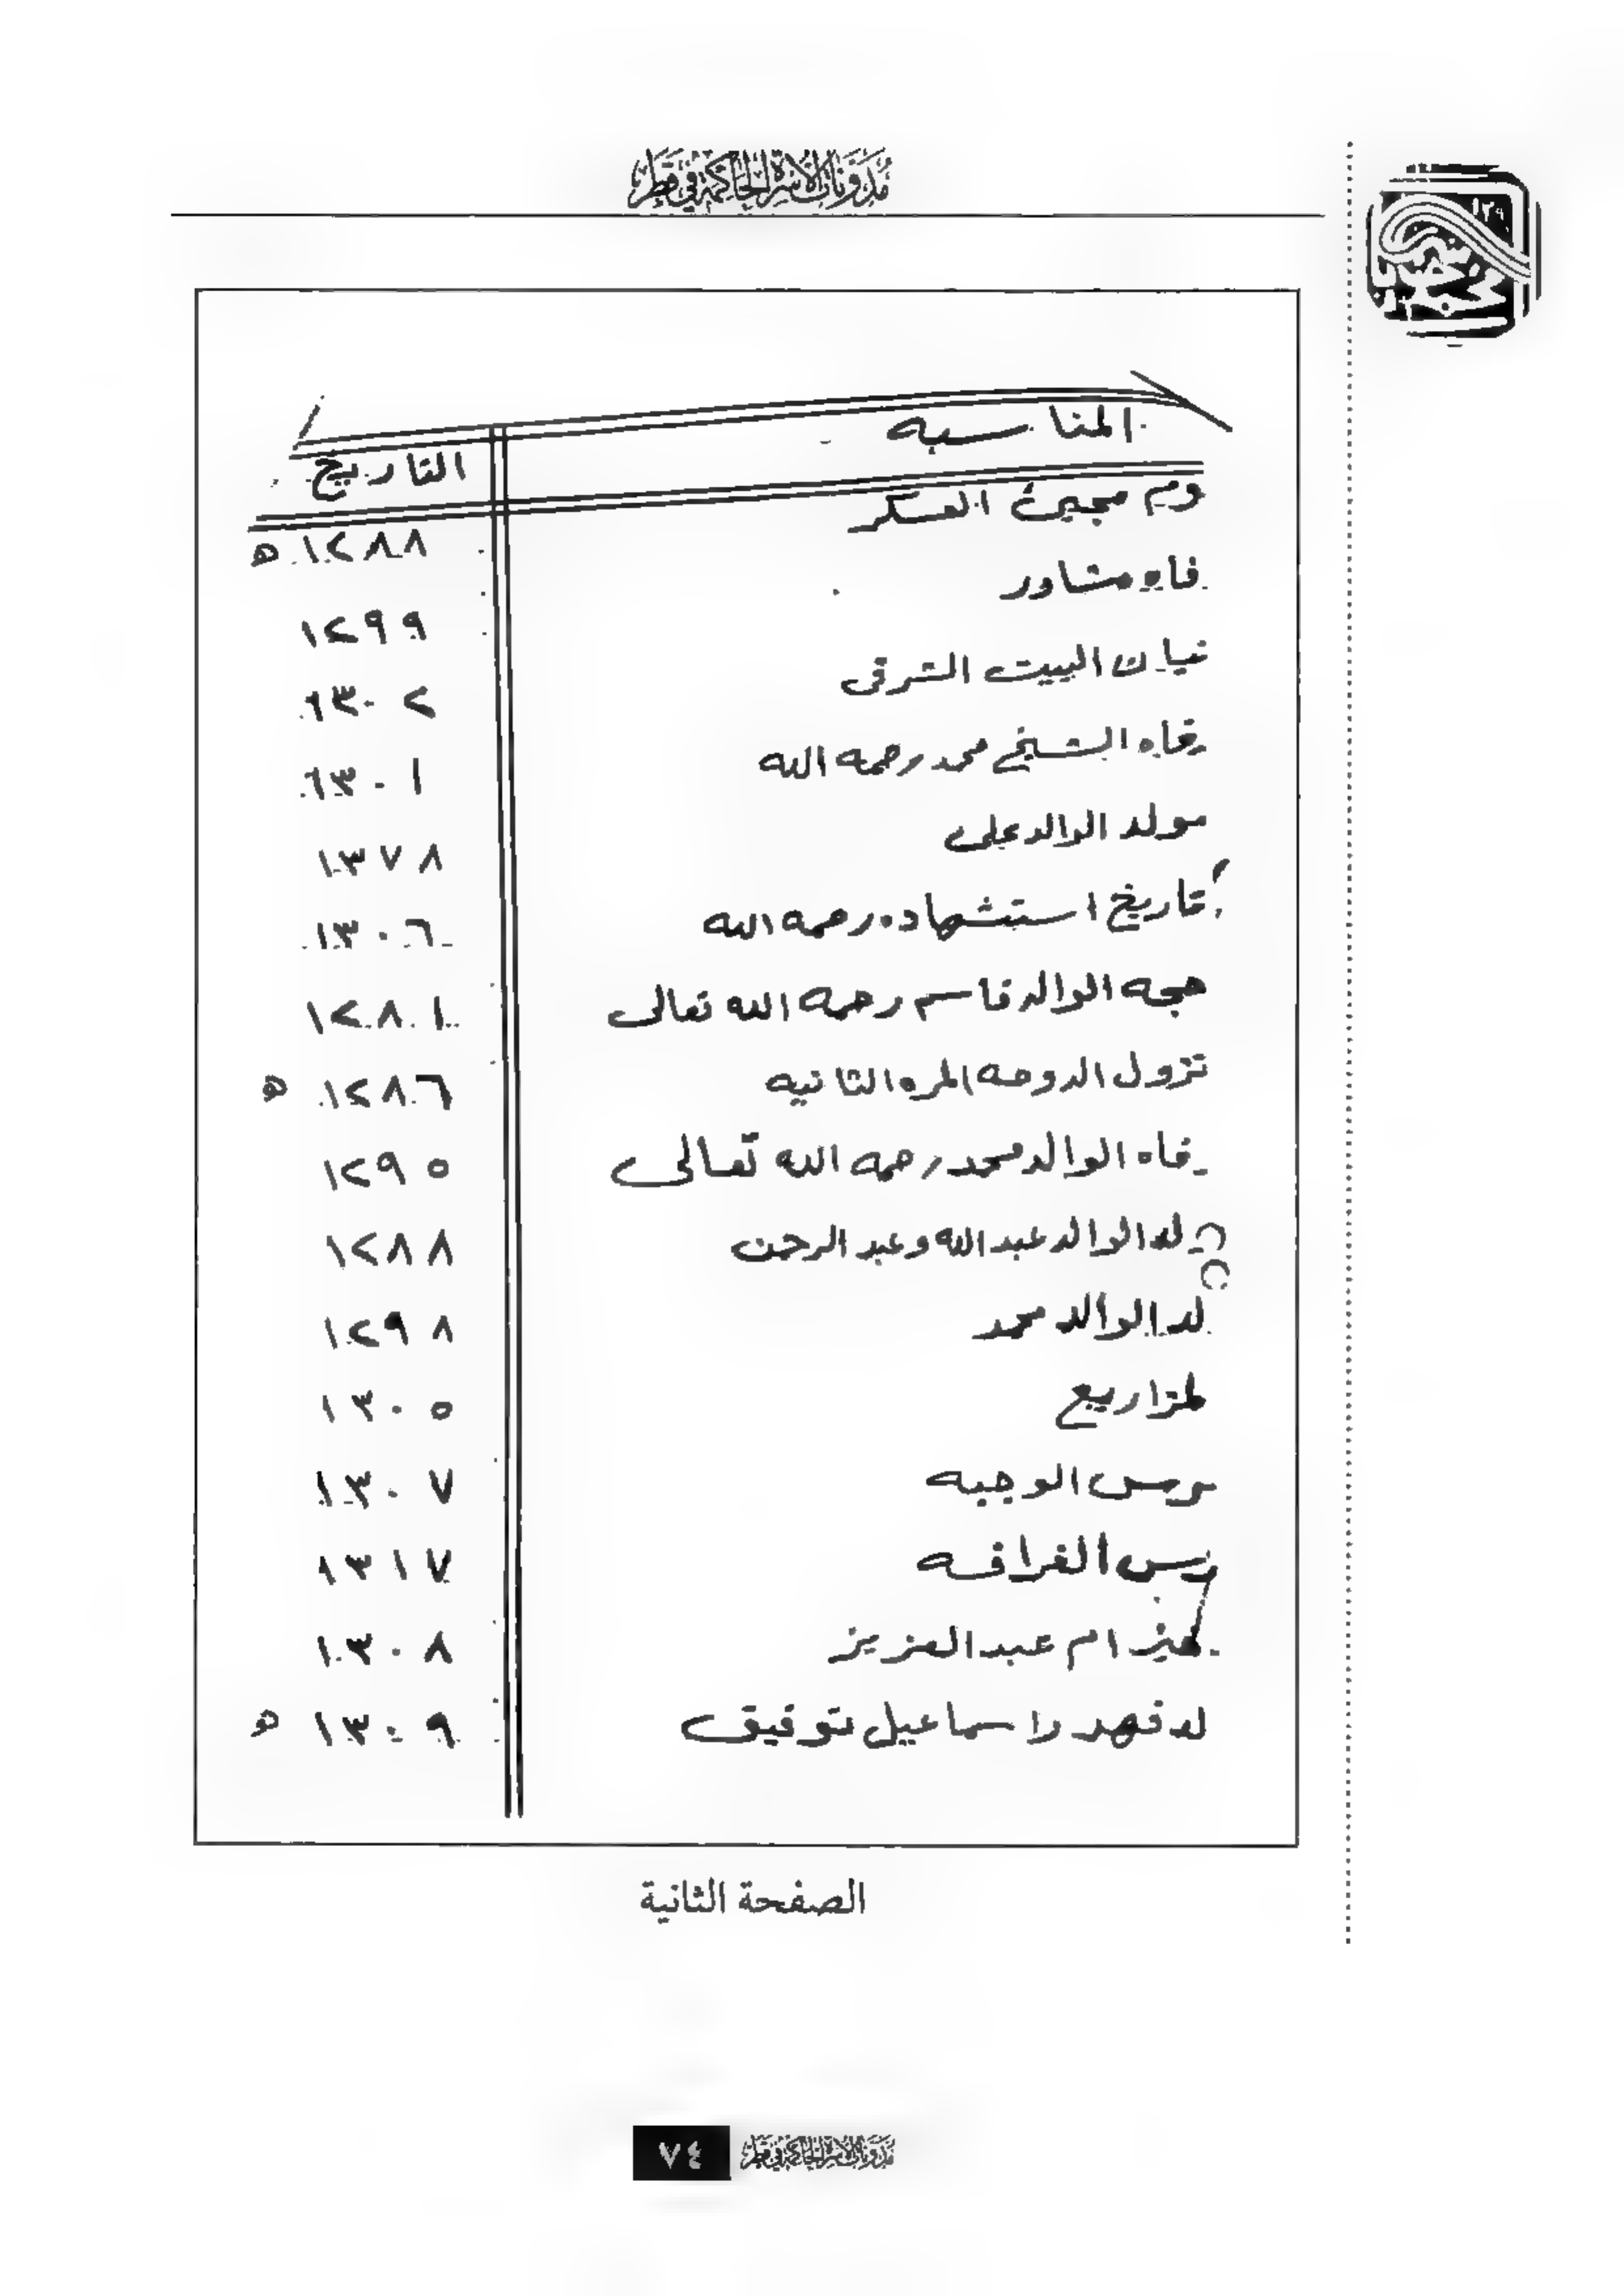 مدونات الأسرة الحاكمة في قطر
المناسبه التاريخ
وم مجيئ العسكر ١٢٨٨ ه
فاه مشاور ١٢٩٩
نيان البيت الشرقي ١٣٠٢
وفاه الشيخ محمد رحمه الله ١٣٠١
مولد الوالد على ١٣٧٨
تاريخ استشهاده رحمه الله ١٣٠٦
حجه الوالد قاسم رحمه الله تعالى ١٢٨١
نزول الدوحه المره الثانيه ١٢٨٦ ه
وفاه الوالد محمد رحمه الله تعالى ١٢٩٥
لد الوالد عبد الله وعبد الرحمن ١٢٨٨
لد الوالد محمد ١٢٩٨
١٣٠٥
الوجبه ١٣٠٧
الغرافه ١٣١٧
ام عبد العزيز ١٣٠٨
لد فهد واسماعيل توفيق ١٣٠٩ ه
الصفحة الثانية
مدونات الأسرة الحاكمة في قطر ٧٤